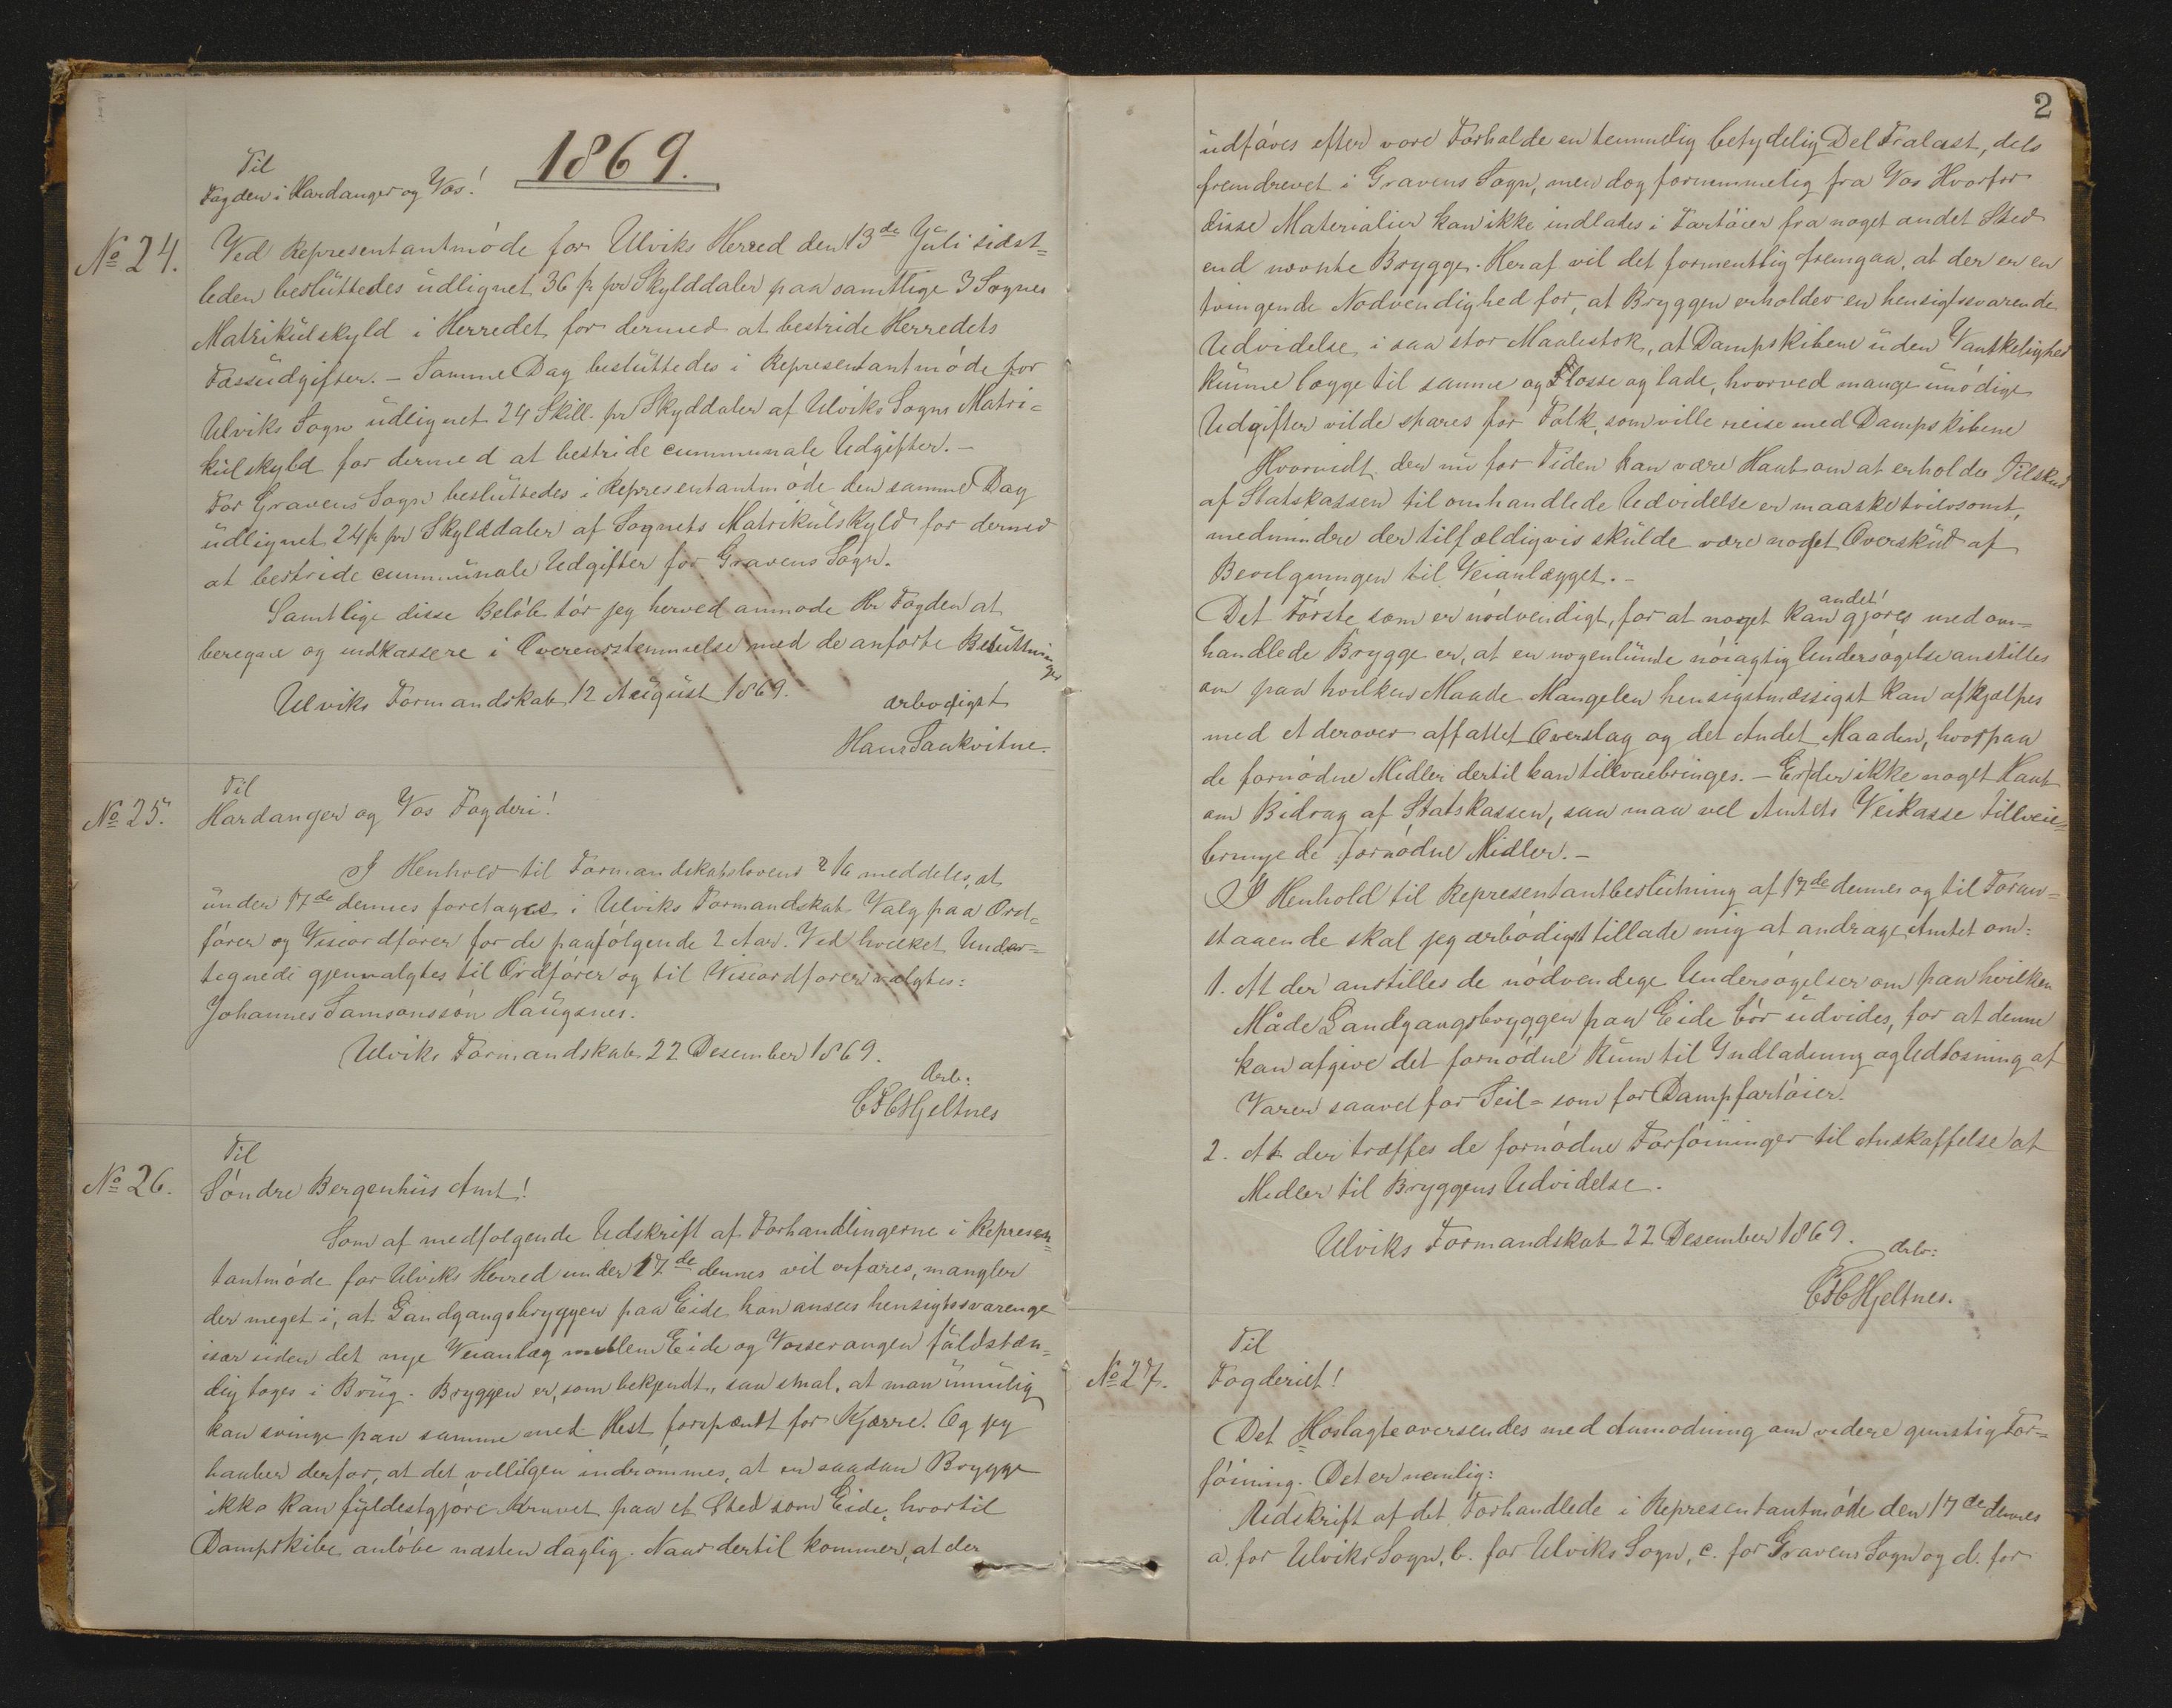 1869.
Til
Fogden i Hardanger og Vos!
No 24. Ved Representantmöde for Ulviks Herred den 13de Juli sidst=
leden besluttedes udlignet 36 ſz pr Skylddaler paa samtlige 3 Sognes
Matrikulskyld i Herredet for dermed at bestride Herredets
Fæsudgifter. – Samme Dag besluttedes i Representantmöde for
Ulviks Sogn udlignet 24 Skill. pr Skyddaler af Ulviks Sogns Matri=
kulskyld for dermed at bestride cummunale Udgifter. –
For Gravens Sogn besluttedes i Representantmöde den samme Dag
udlignet 24 ſz pr Skylddaler af Sognets Matrikulskyld for dermed
at bestride cummunale Udgifter for Gravens Sogn.
Samtlige disse Beløb tör jeg herved anmode Hr Fogden at
beregne og indkassere i Overensstemmelse med de anförte Beslutninger
Ulviks Formandskab 12 August 1869.
ærbodigst
Hans Saakvitne.
Til
No 25. Hardanger og Vos Fogderi!
I Henhold til Formandskabslovens § 16 meddeles, at
under 17de dennes foretages i Ulviks Formandskab Valg paa Ord=
förer og Viseordförer for de paafölgende 2 Aar. Ved hvilket Under=
tegnede gjenvalgtes til Ordförer og til Viseordförer valgtes:
Johannes Samsonssön Haugsnes.
Ulviks Formandskab 22 Desember 1869.
Ærb:
CFCHjeltnes
Til
No 26. Söndre Bergenhus Amt!
Som af medfølgende Udskrift af Forhandlingerne i Represen=
tantmöde for Ulviks Herred under 17de dennes vil erfares, mangler
der meget i, at Landgangsbryggen paa Eide kan ansees hensigtssvarenge
især siden det nye Veianlæg mellem Eide og Vossevangen fuldstæn=
dig toges i Brug. Bryggen er, som bekjendt, saa smal, at man umulig
kan svinge paa samme med Hest forspændt for Kjærre. Og jeg
haaber derfor, at det villigen indrømmes, at en saadan Brygge
ikke kan fyldestgjöre Kravet paa et Sted som Eide, hvortil
Dampskibe anlöbe næsten daglig. Naar dertil kommer, at der
2
udføres efter vore Forholde en temmelig betydelig Del Trælast, dels
fremdrevet i Gravens Sogn, men dog fornemmelig fra Vos Hvorfor
disse Materialier kan ikke indlades i Fartöier fra noget andet Sted
end nævnte Brygge. Heraf vil det formentlig fremgaa, at der er en
tvingende Nødvendighed for, at Bryggen erholder en hensigtssvarende
Udvidelse i saa stor Maalestok, at Dampskibene uden Vanskelighed
kunne lægge til samme og losse og lade, hvorved mange unödige
Udgifter vilde spares for Folk, som ville reise med Dampskibene
Hvorvidt der nu for Tiden kan være Haab om at erholde Tilskud
af Statskassen til omhandlede Udvidelse er maaske tvilsomt,
medmindre der tilfældigvis skulde være noget Overskud af
Bevilgningen til Veianlægget. –
Det Förste som er nödvendigt, for at noget andet kan gjöres med om=
handlede Brygge er, at en nogenlunde nöiagtig Undersøgelse anstilles
om paa hvilken Maade Mangelen hensigtmæssigst kan afhjælpes
med et derover affattet Overslag og det Andet Maaden, hvorpaa
de fornødne Midler dertil kan tilveiebringes. – Er der ikke noget Haab
om Bidrag af Statskassen, saa maa vel Amtets Veikasse tilveie=
bringe de fornødne Midler. –
I Henhold til Representantbeslutning af 17de dennes og til Foran=
staaende skal jeg ærbödigst tillade mig at andrage Amtet om:
1. At der anstilles de nödvendige Undersøgelser om paa hvilken
Måde Landgangsbryggen paa Eide bör udvides, for at denne
kan afgive det fornødne Rum til Indladning og Udlosning af
Varer saavel for Seil- som for Dampfartöier.
2. At der træffes de fornödne Forföininger til Anskaffelse af
Midler til Bryggens Udvidelse.
Ulviks Formandskab 22 Desember 1869.
ærb:
CFCHjeltnes.
Til
No 27. Fogderiet!
Det Hoslagte oversendes med Anmodning om videre gunstig For=
föining. Det er nemlig:
Udskrift af det Forhandlede i Representantmöde den 17de dennes
a. for Ulviks Sogn, b. for Ulviks Sogn, c. for Gravens Sogn og d. for